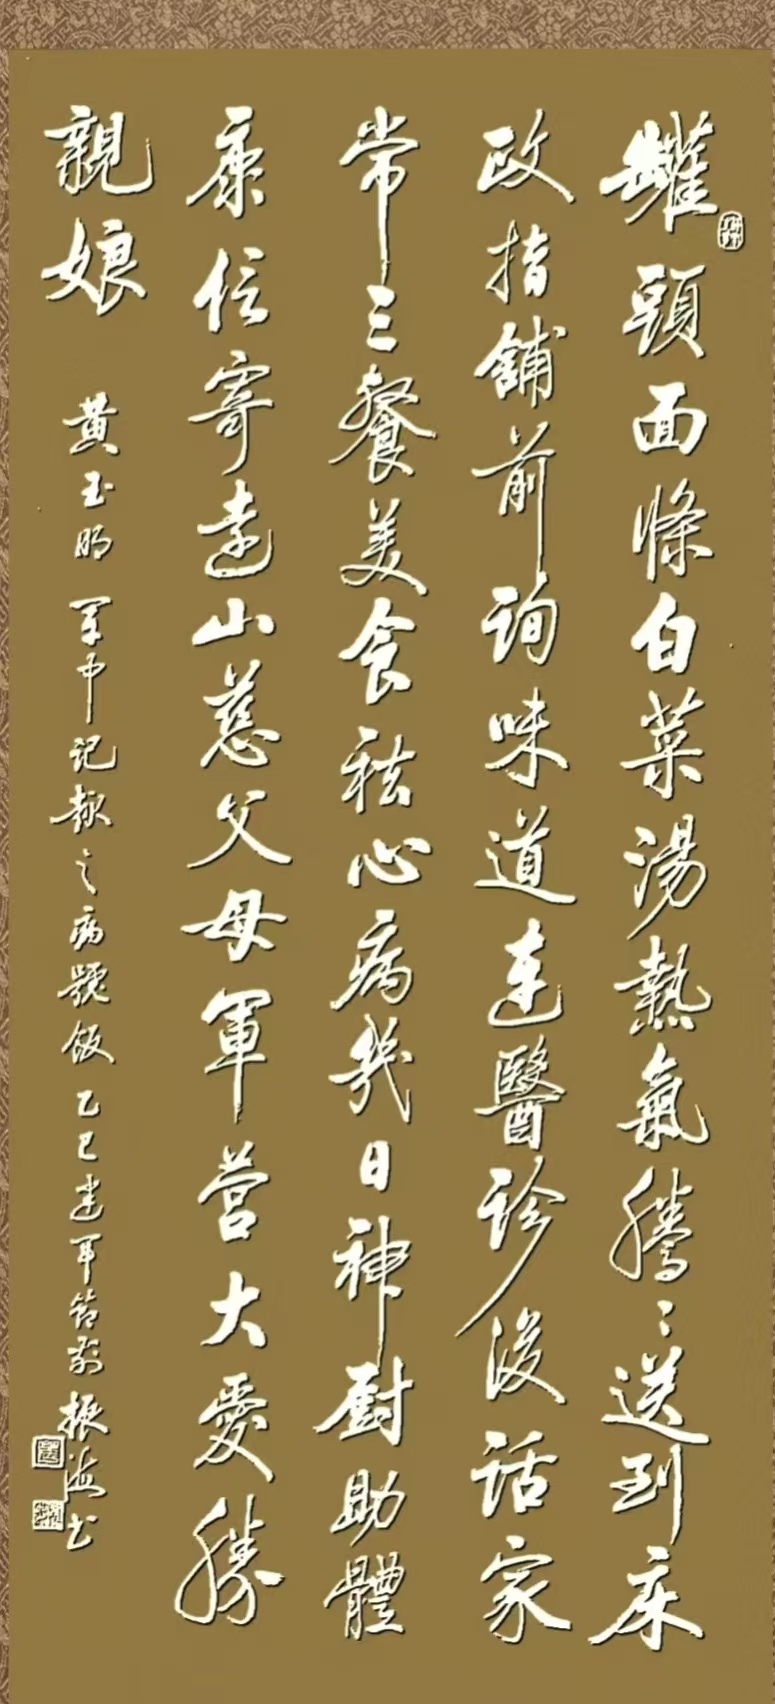 罐頭面條白菜湯熱氣騰々送到床
政指鋪前詢味道連醫診後話家
常三餐美食祛心病幾日神廚助體
康信寄遠山慈父母軍營大愛勝
親娘 黃玉明 军中記趣之病號飯 乙巳建军節前振海书